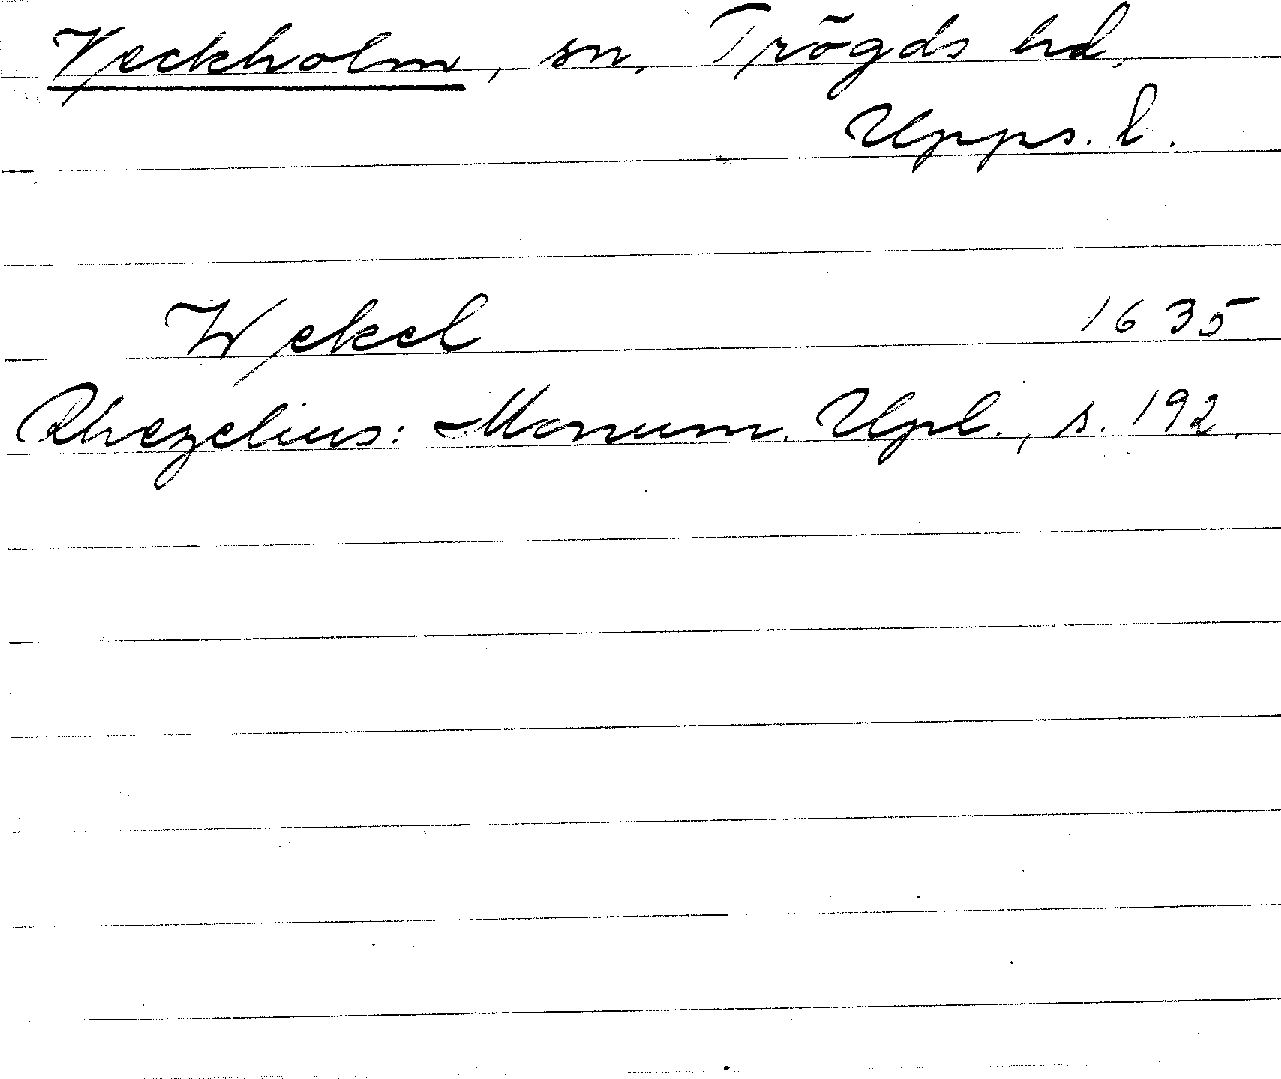 Veckholm, sn, Trögds hd,
Upps. l.
Wekel 1635
Rhezelius: Monum. Upl., s. 192.